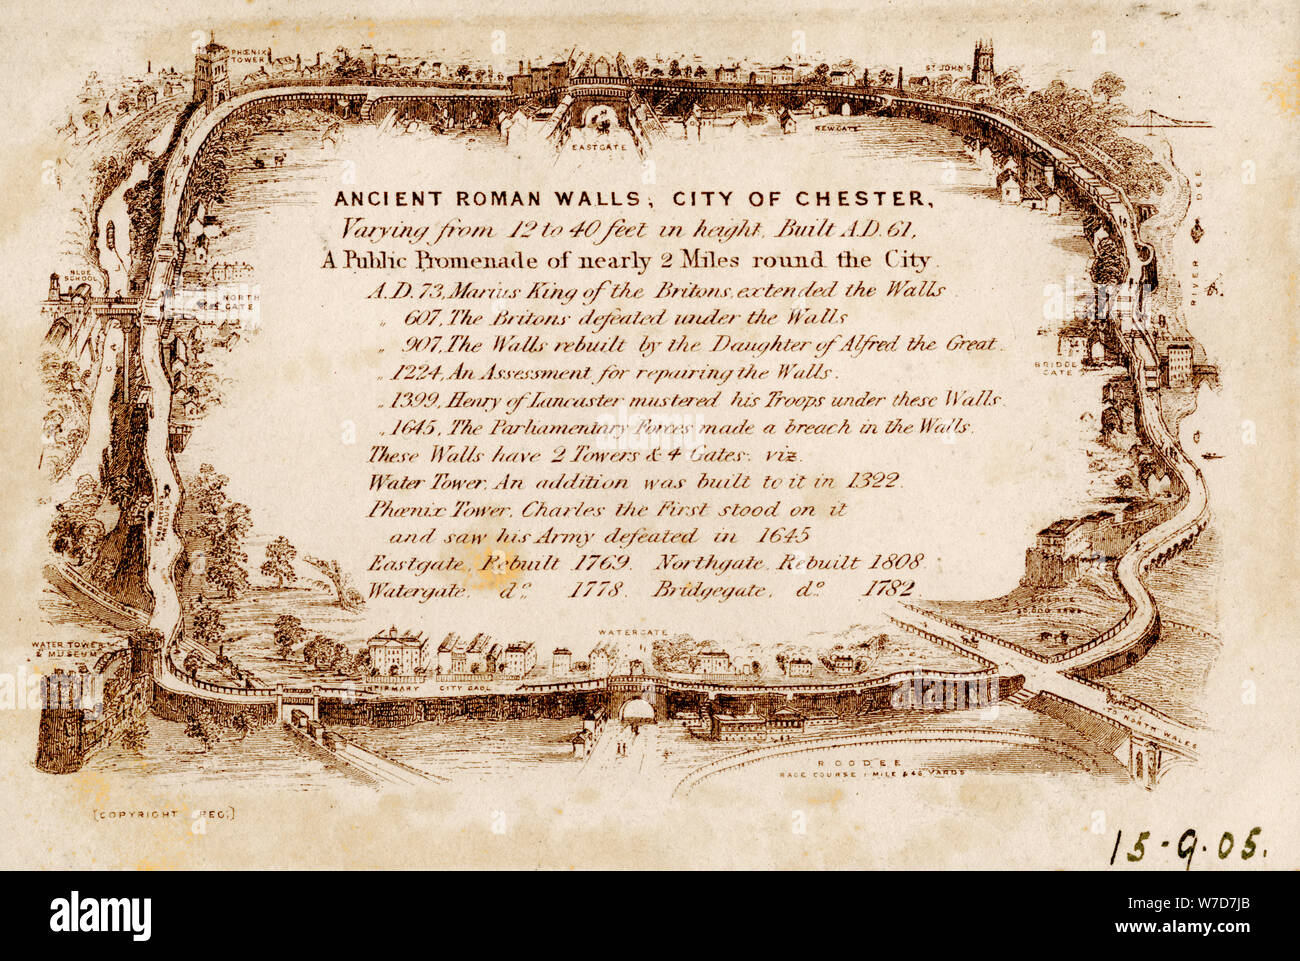 PHŒNIX
TOWER
ST JOHN'S
EASTGATE
NEWGATE
RIVER DEE
BLUE
SCHOOL
NORTH
GATE
BRIDGE
GATE
ANCIENT ROMAN WALLS, CITY OF CHESTER,
Varying from 12 to 40 feet in height, Built A.D. 61,
A Public Promenade of nearly 2 Miles round the City.
A.D. 73, Marius King of the Britons, extended the Walls
„ 607, The Britons defeated under the Walls
„ 907, The Walls rebuilt by the Daughter of Alfred the Great.
„ 1224, An Assessment for repairing the Walls.
„ 1399, Henry of Lancaster mustered his Troops under these Walls.
„ 1645, The Parliamentary Forces made a breach in the Walls.
These Walls have 2 Towers & 4 Gates; viz.
Water Tower, An addition was built to it in 1322.
Phœnix Tower, Charles the First stood on it
and saw his Army defeated in 1645
Eastgate, Rebuilt 1769. Northgate, Rebuilt 1808.
Watergate, do. 1778. Bridgegate, do. 1782.
WATER TOWER
& MUSEUM
WATERGATE
INFIRMARY
CITY GAOL
NORTH WALES
ROODEE
RACE COURSE 1 MILE & 46 YARDS
[COPYRIGHT REG;]
15-9.05.
alamy
Image ID: W7D7JB
www.alamy.com